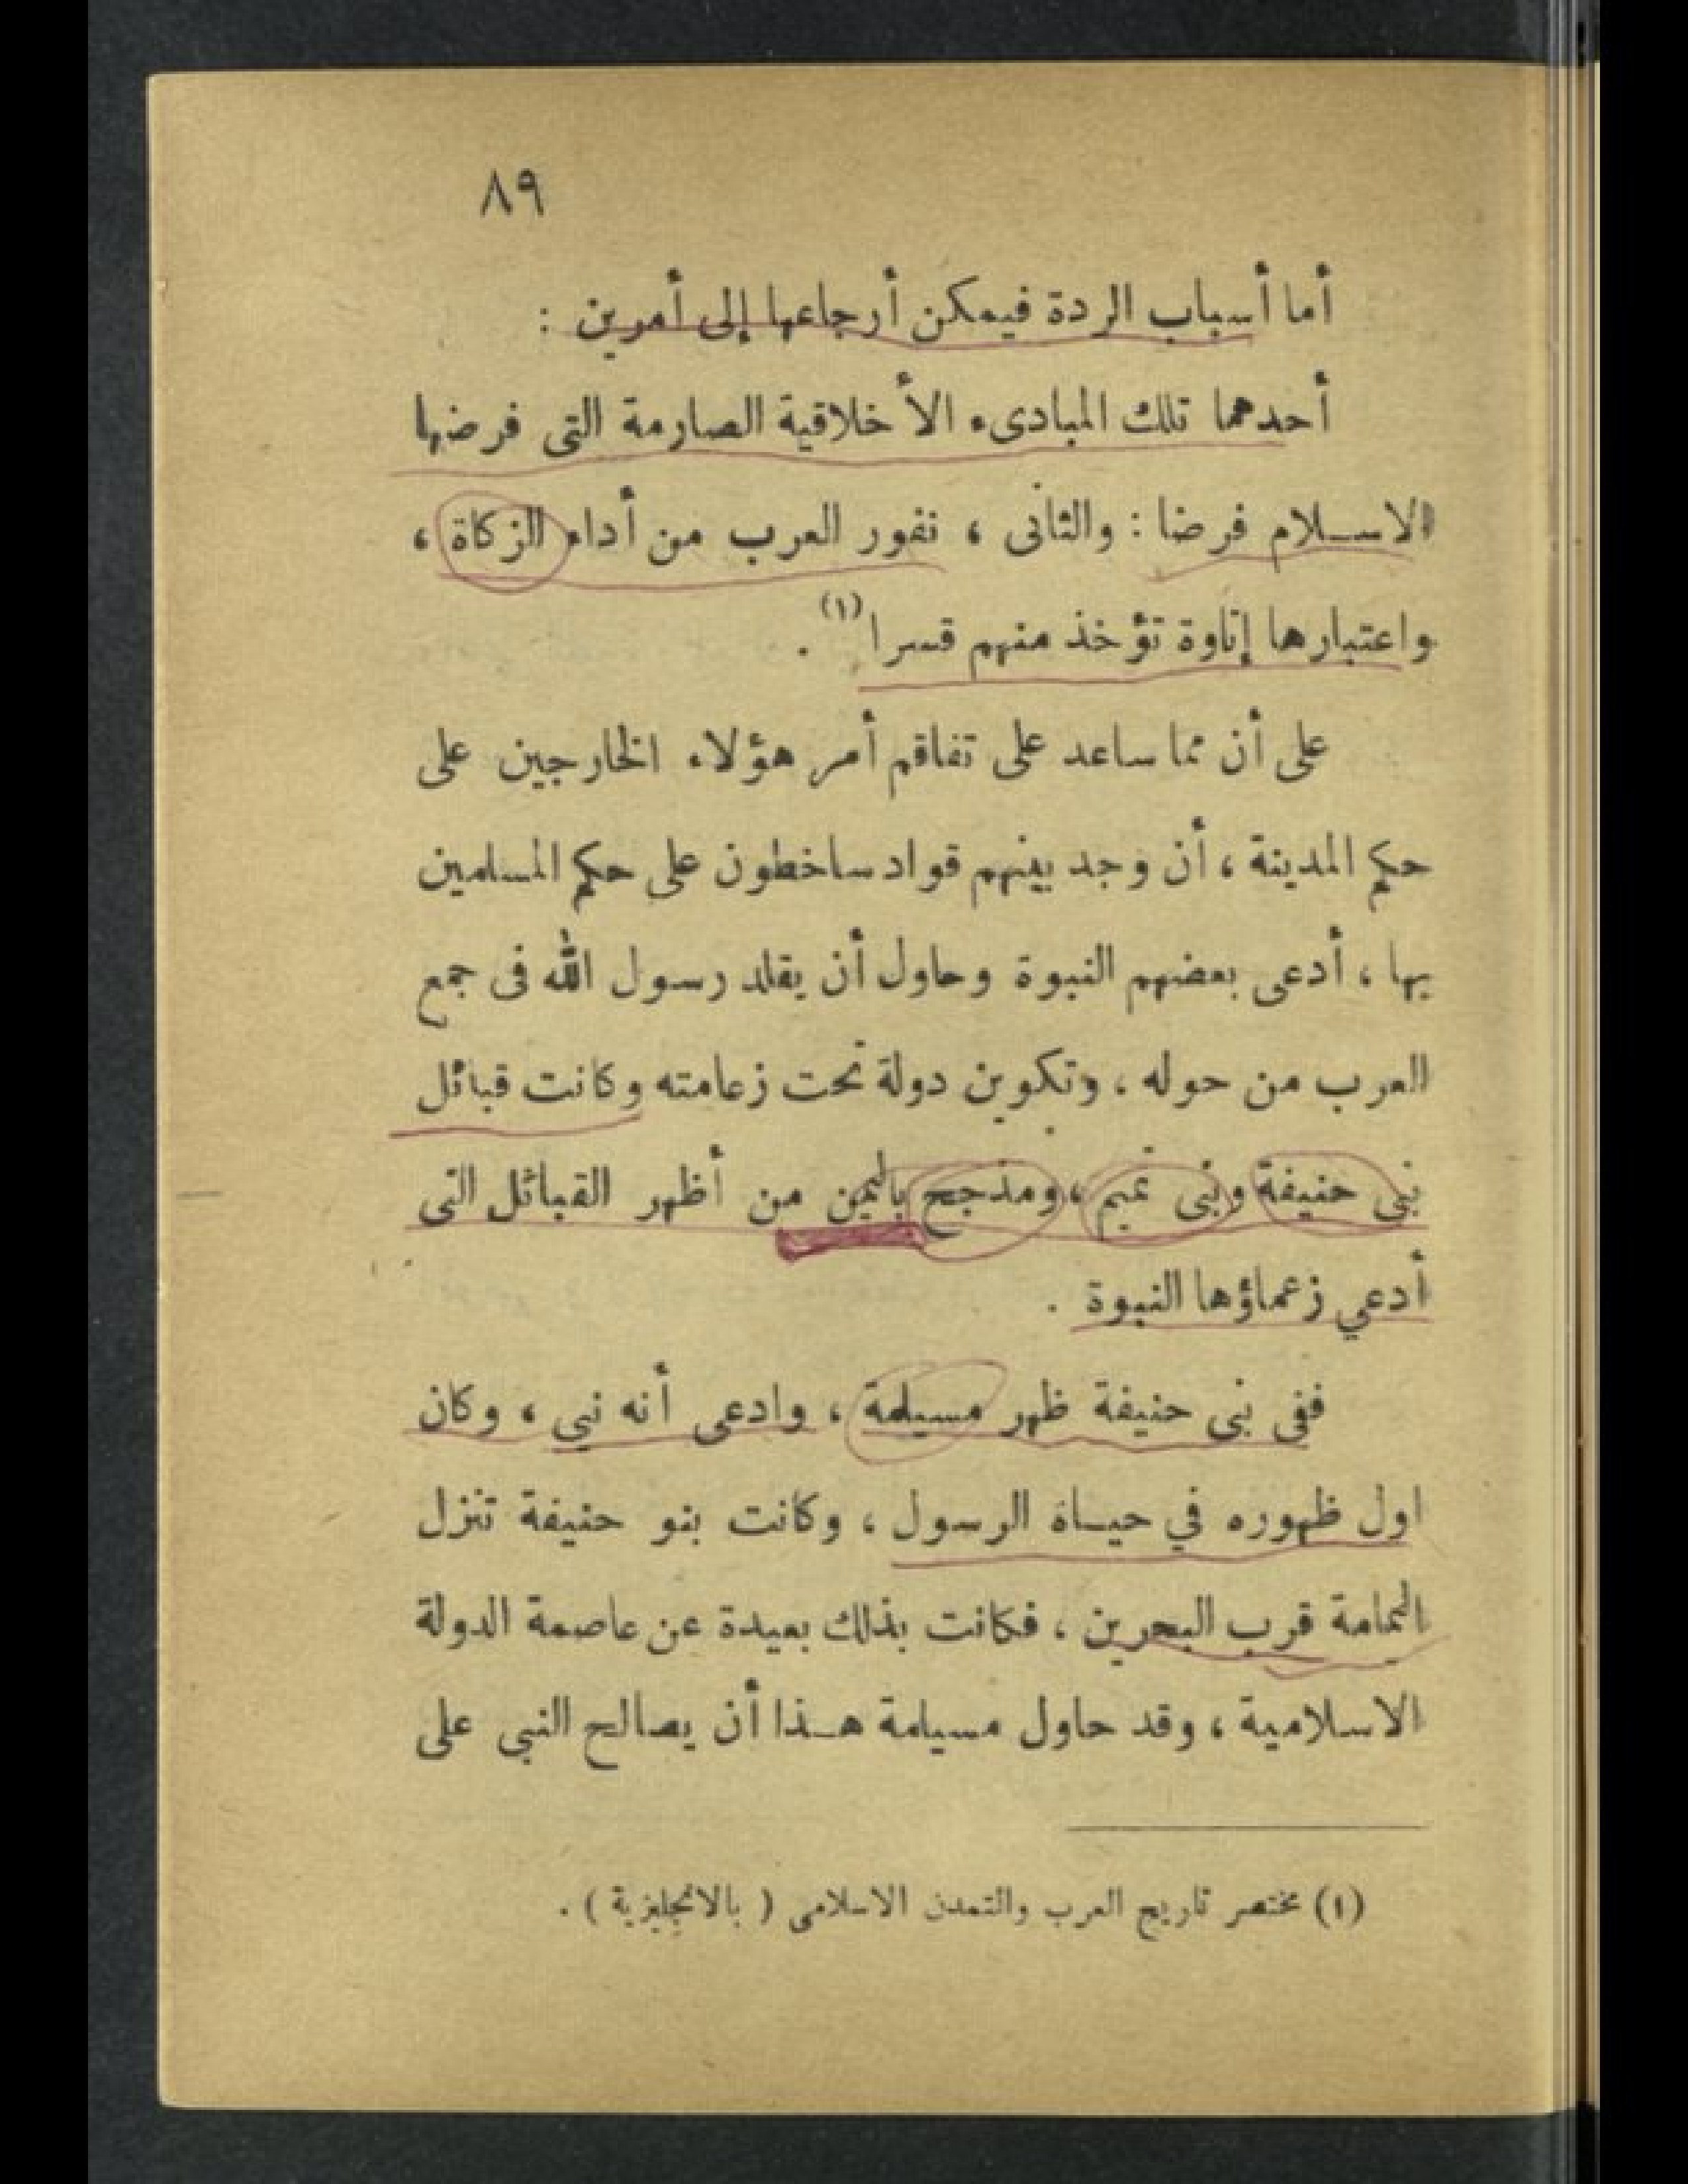 ٨٩
أما أسباب الردة فيمكن أرجاعها إلى أمرين :
أحدهما تلك المبادىء الأخلاقية الصارمة التى فرضها
الاسـلام فرضا : والثانى ، نفور العرب من أداء الزكاة ،
واعتبارها إتاوة تؤخذ منهم قسرا (١) .
على أن مما ساعد على تفاقم أمر هؤلاء الخارجين على
حكم المدينة ، أن وجد بينهم قواد ساخطون على حكم المسلمين
بها ، أدعى بعضهم النبوة وحاول أن يقلد رسول الله فى جمع
العرب من حوله ، وتكوين دولة تحت زعامته وكانت قبائل
بنى حنيفة وبنى تميم ، ومذحج باليمن من أظهر القبائل التى
أدعي زعماؤها النبوة .
ففى بنى حنيفة ظهر مسيلمة ، وادعى أنه نبي ، وكان
اول ظهوره في حيـاة الرسول ، وكانت بنو حنيفة تنزل
اليمامة قرب البحرين ، فكانت بذلك بعيدة عن عاصمة الدولة
الاسلامية ، وقد حاول مسيلمة هـذا أن يصالح النبى على
(١) مختصر تاريخ العرب والتمدن الاسلامى ( بالانجليزية ) .